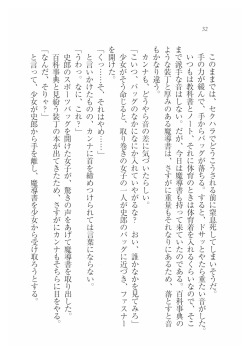 52
このままでは、セクハラでどうこうされる前に窒息死してしまいそうだ。
手の力が緩んで、手からバッグが落ちる。すると、ドサッとやたら重たい音がした。
いつもは教科書とノート、それに体育のときは体育着を入れるくらいなので、そこ
まで派手な音はしない。だが、今日は魔導書が入っているのである。百科事典の
ような装丁と厚みのある魔導書は、さすがに重量もそれなりにあるため、落とすと音
もかなり違う。
カンナも、どうやら音の差に気づいたらしい。
「こいつ、バッグのなかになにか入れていやがるな? おい、誰かなかを見てみろ」
少女がそう命じると、取り巻きの女子の一人が史郎のバッグに近づき、ファスナー
を開けた。
「くっ……そ、それはやめ……」
と言いかけたものの、カンナに首を締めつけられては言葉にならない。
「うわっ。なに、これ?」
史郎のスポーツバッグを開けた女子が、驚きの声をあげて魔導書を取り出した。
百科事典と見紛う装丁の本が出てきたため、さすがにカンナもそちらに目をやる。
「なんだ、そりゃ?」
と言って、少女が史郎から手を離し、魔導書を少女から受け取ろうとする。